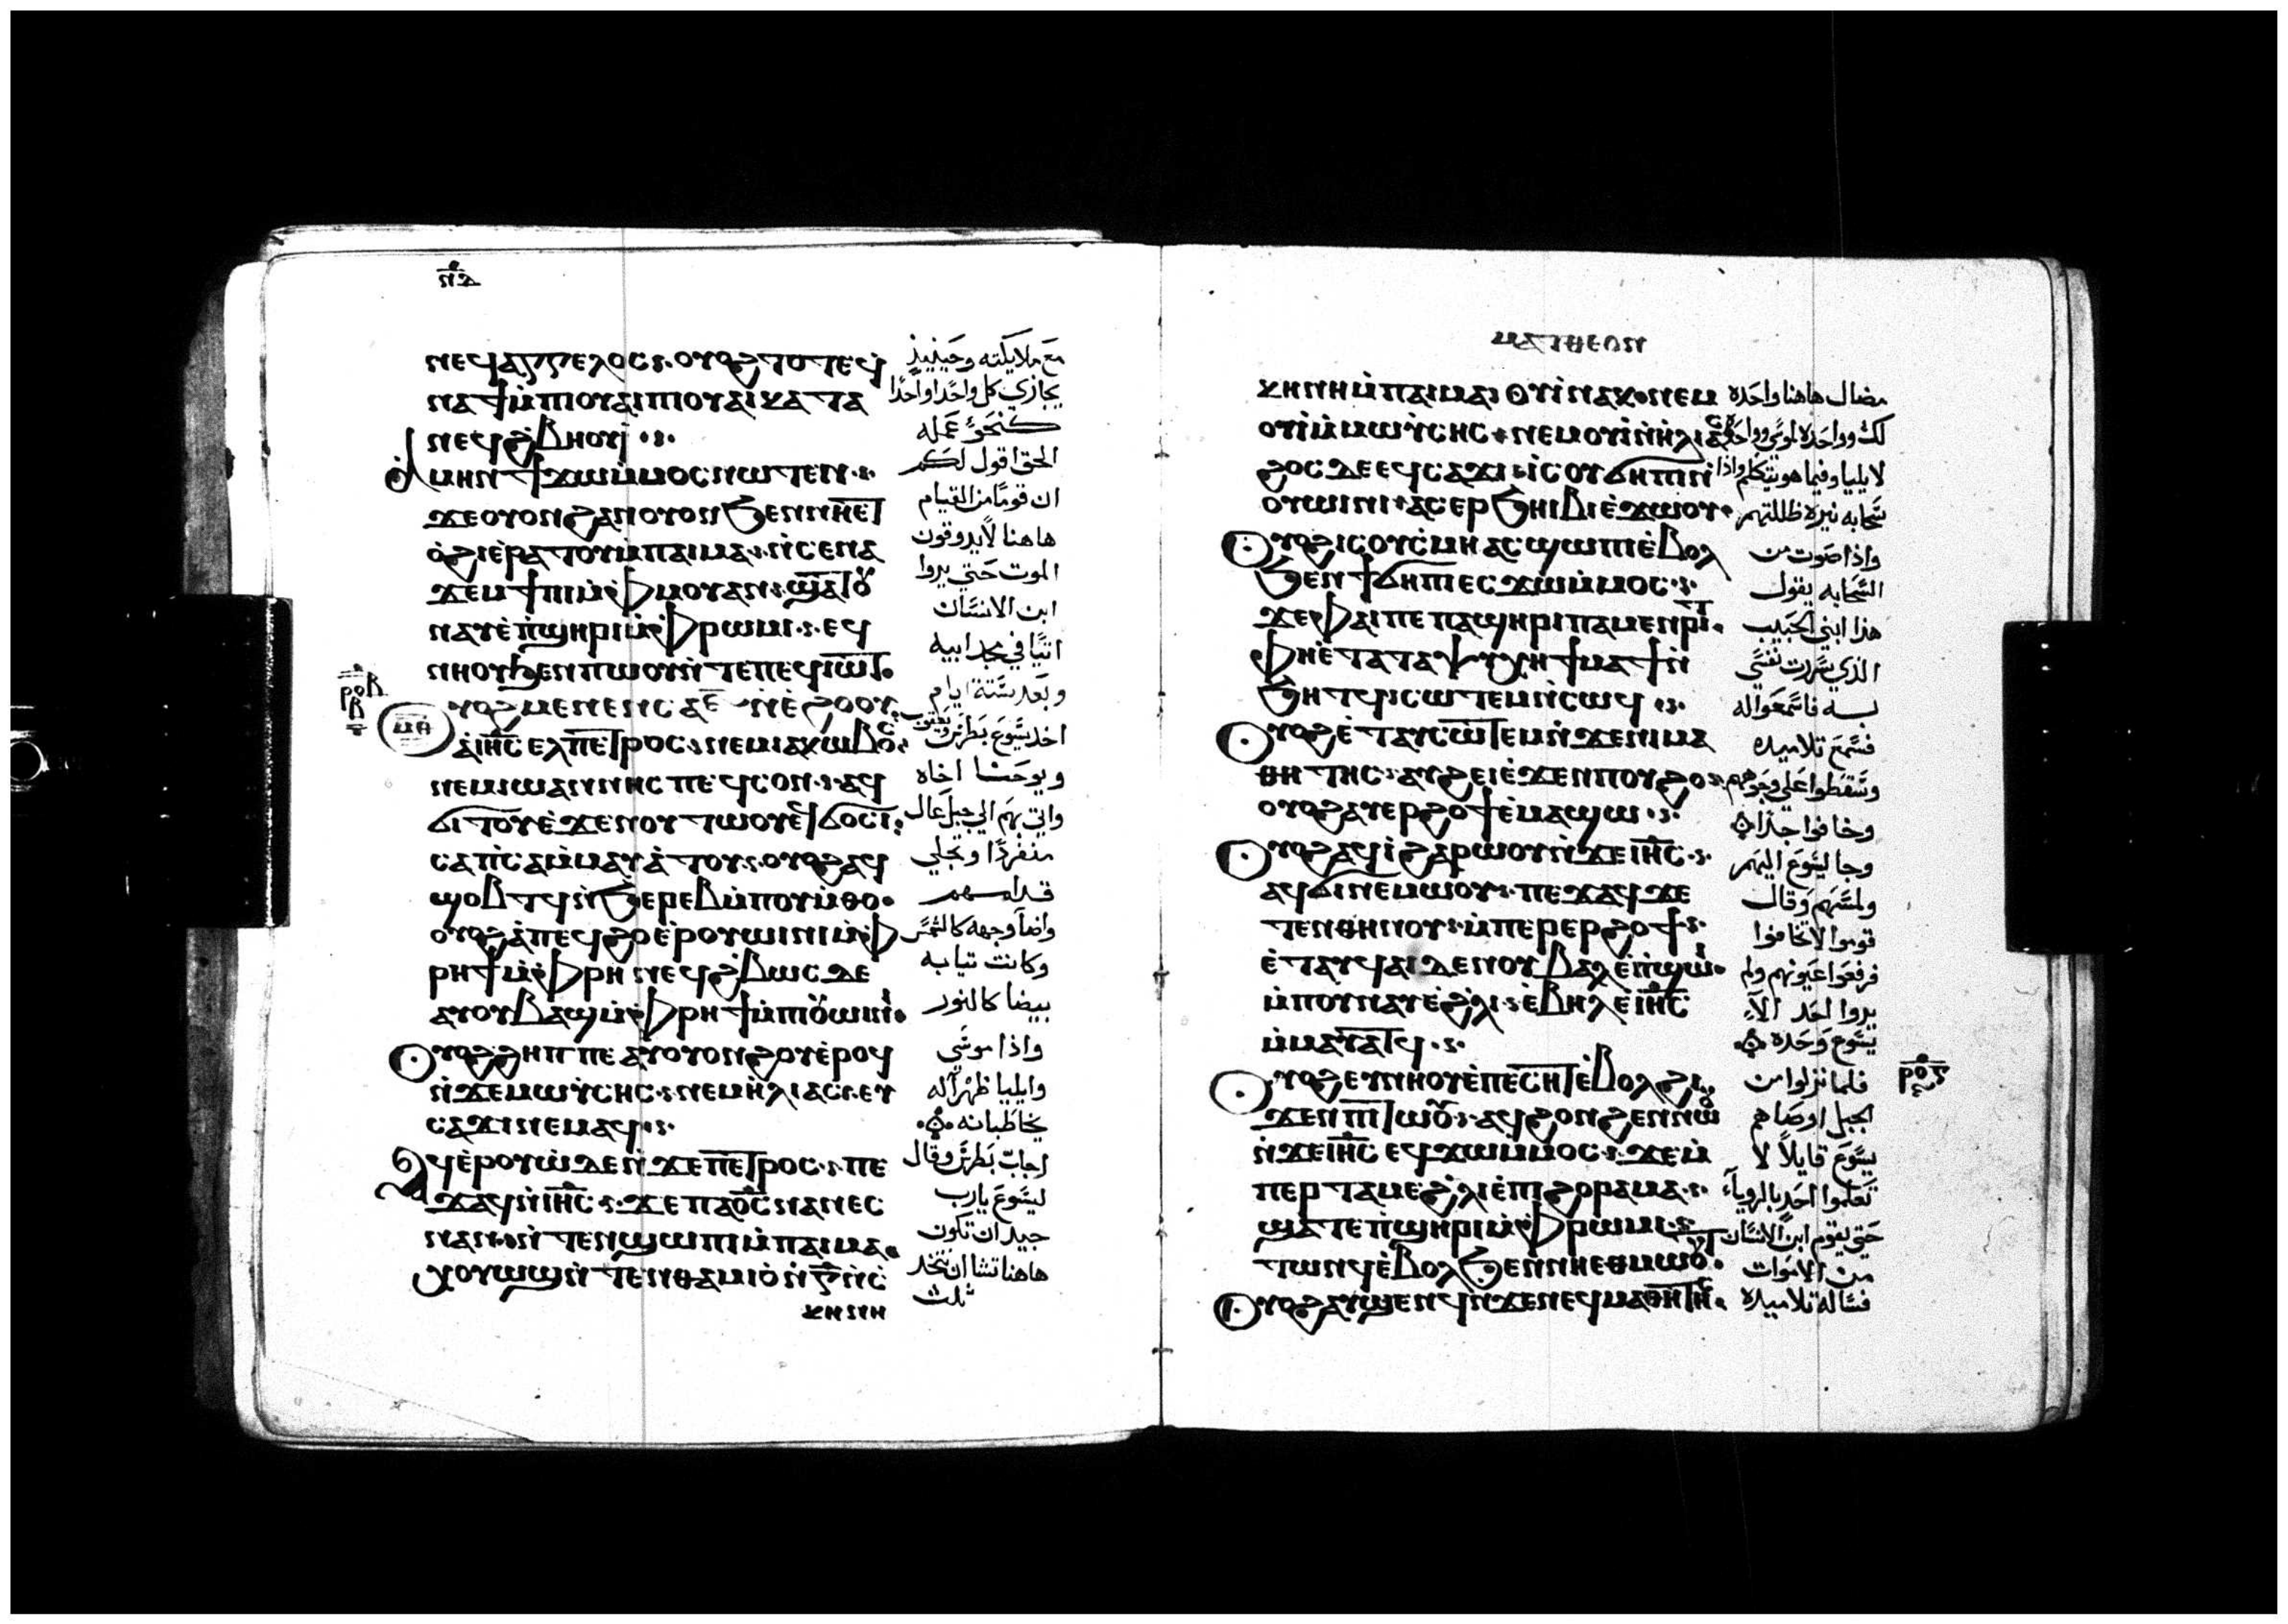 ⲛⲇ
ⲛⲉϥⲁⲅⲅⲉⲗⲟⲥ ⲟⲩⲟϩ ⲧⲟⲧⲉϥ
ⲛⲁϯⲙ̇ⲡⲓⲟⲩⲁⲓ ⲡⲓⲟⲩⲁⲓ ⲕⲁⲧⲁ
ⲛⲉϥϩ̇ⲃⲏⲟⲩⲓ
ⲁⲙⲏⲛ ϯϫⲱⲙ̇ⲙⲟⲥ ⲛⲱⲧⲉⲛ
ϫⲉ ⲟⲩⲟⲛ ϩⲁⲛⲟⲩⲟⲛ ϧⲉⲛ ⲛⲏⲉⲧ
ⲟ̇ϩⲓ ⲉ̇ⲣⲁⲧⲟⲩ ⲙ̇ⲡⲁⲓⲙⲁ ⲛ̇ⲥⲉⲛⲁ
ϫⲉⲙϯⲡⲓ ⲙ̇ⲫⲙⲟⲩ ⲁⲛ ϣⲁⲧⲟⲩ
ⲛⲁⲩ ⲉ̇ⲡ̇ϣⲏⲣⲓ ⲙ̇ⲫⲣⲱⲙⲓ ⲉϥ
ⲛⲏⲟⲩ ϧⲉⲛ ⲡⲱⲟⲩ ⲛ̇ⲧⲉ ⲡⲉϥⲓⲱⲧ
ⲣⲟⲃ
ⲃ
ⲙⲏ
ⲟⲩⲟϩ ⲙⲉⲛⲉⲛⲥⲁ ⲋ̅ ⲛ̇ⲉ̇ϩⲟⲟⲩ
ⲁ̇ ⲓⲏ̅ⲥ̅ ⲉⲗ ⲡⲉⲧⲣⲟⲥ ⲛⲉⲙ ⲓⲁⲕⲱⲃⲟⲥ
ⲛⲉⲙ ⲓⲱⲁⲛⲛⲏⲥ ⲡⲉϥⲥⲟⲛ ⲁϥ
ϭⲓⲧⲟⲩ ⲉ̇ϫⲉⲛ ⲟⲩⲧⲱⲟⲩ ⲉϥϭⲟⲥⲓ
ⲥⲁⲡ̇ⲥⲁ ⲙ̇ⲙⲁⲩⲁ̇ⲧⲟⲩ ⲟⲩⲟϩ ⲁϥ
ϣⲟⲃⲧϥ ⲛ̇ϧⲉⲣⲉⲃ ⲙ̇ⲡⲟⲩⲙ̇ⲑⲟ
ⲟⲩⲟϩ ⲁ̇ ⲡⲉϥϩⲟ ⲉ̇ⲣⲟⲩⲱⲓⲛⲓ ⲙ̇ⲫ
ⲣⲏϯ ⲙ̇ⲫⲣⲏ ⲛⲉϥϩ̇ⲃⲱⲥ ⲇⲉ
ⲁⲩⲟⲩⲃⲁϣ ⲙ̇ⲫⲣⲏϯ ⲙ̇ⲡⲓⲟⲩⲱⲓⲛⲓ
ⲟⲩⲟϩ ϩⲏⲡⲡⲉ ⲁⲩⲟⲩⲟⲛϩⲟⲩ ⲉ̇ⲣⲟϥ
ⲛ̇ϫⲉ ⲙⲱⲩⲥⲏⲥ ⲛⲉⲙ ⲏ̇ⲗⲓⲁⲥ ⲉⲩ
ⲥⲁϫⲓ ⲛⲉⲙⲁϥ
ⲁϥⲉ̇ⲣⲟⲩⲱ̇ ⲇⲉ ⲛ̇ϫⲉ ⲡⲉⲧⲣⲟⲥ ⲡⲉ
ϫⲁϥ ⲛ̇ⲓⲏ̅ⲥ̅ ϫⲉ ⲡⲁⲟ̅ⲥ̅ ⲛⲁⲛⲉⲥ
ⲛⲁⲛ ⲛ̇ⲧⲉⲛϣⲱⲡⲓ ⲙ̇ⲡⲁⲓⲙⲁ
ⲭⲟⲩⲱϣ ⲛ̇ⲧⲉⲛⲑⲁⲙⲓⲟ̇ ⲛ̇ⲅ̅ ⲛ̇ⲥ
ⲕⲏⲛⲏ
مع ملايكته وحينيذ
يجازي كل واحدا واحدا
كنحو عمله
الحق اقول لكم
ان قوما من القيام
هاهنا لا يدوقون
الموت حتي يروا
ابن الانسان
اتيا في مجد ابيه
وبعد ستة ايام
اخد يسوع بطرس ويعقوب
ويوحنا اخاه
واتي بهم الي جبل عال
منفردا وتجلي
قدامهم
واضا وجهه كالشمس
وكانت تيابه
بيضا كالنور
واذا موسي
وايليا ظهرا له
يخاطبانه
اجاب بطرس وقال
ليسوع يارب
جيد ان نكون
هاهنا تشا ان نتخد
ثلث
ⲙⲁⲧⲑⲉⲟⲛ
ⲕⲏⲛⲏ ⲙ̇ⲡⲁⲓⲙⲁ ⲟⲩⲓ̇ ⲛⲁⲕ ⲛⲉⲙ
ⲟⲩⲓ̇ ⲙ̇ⲙⲱⲩⲥⲏⲥ ⲛⲉⲙ ⲟⲩⲓ̇ ⲛ̇ⲏ̇ⲗⲓⲁⲥ
ϩⲟⲥ ⲇⲉ ⲉϥⲥⲁϫⲓ ⲓⲥ ⲟⲩϭⲏⲡⲓ ⲛ̇
ⲟⲩⲱⲓⲛⲓ ⲁⲥⲉⲣϧⲏⲓⲃⲓ ⲉ̇ϫⲱⲟⲩ
ⲟⲩⲟϩ ⲓⲥ ⲟⲩⲥ̇ⲙⲏ ⲁⲥϣⲱⲡⲓ ⲉ̇ⲃⲟⲗ
ϧⲉⲛ ϯϭⲏⲡⲓ ⲉⲥϫⲱⲙ̇ⲙⲟⲥ
ϫⲉ ⲫⲁⲓ ⲡⲉ ⲡⲁϣⲏⲣⲓ ⲡⲁⲙⲉⲛⲣⲓⲧ
ⲫⲏⲉⲧⲁ ⲧⲁⲯⲩⲭⲏ ϯⲙⲁϯ ⲛ̇
ϧⲏⲧϥ ⲥⲱⲧⲉⲙ ⲛ̇ⲥⲱϥ
ⲟⲩⲟϩ ⲉ̇ⲧⲁⲩⲥⲱⲧⲉⲙ ⲛ̇ϫⲉ ⲛⲓⲙⲁ
ⲑⲏⲧⲏⲥ ⲁⲩϩⲉⲓ ⲉ̇ϫⲉⲛ ⲡⲟⲩϩⲟ
ⲟⲩⲟϩ ⲁⲩⲉⲣϩⲟϯ ⲉ̇ⲙⲁϣⲱ
ⲟⲩⲟϩ ⲁϥⲓ̇ ϩⲁⲣⲱⲟⲩ ⲛ̇ϫⲉ ⲓⲏ̅ⲥ̅
ⲁϥϭⲓⲛⲉⲙⲱⲟⲩ ⲡⲉϫⲁϥ ϫⲉ
ⲧⲉⲛⲑⲏⲛⲟⲩ ⲙ̇ⲡⲉⲣⲉⲣϩⲟϯ
ⲉ̇ⲧⲁⲩϥⲁⲓ ⲇⲉ ⲛⲟⲩⲃⲁⲗ ⲉ̇ⲡ̇ϣⲱⲓ
ⲙ̇ⲡⲟⲩⲛⲁⲩ ⲉ̇ϩ̇ⲗⲓ ⲉ̇ⲃⲏⲗ ⲉ̇ⲓⲏ̅ⲥ̅
ⲙ̇ⲙⲁⲩⲁⲧϥ
ⲟⲩⲟϩ ⲉⲩⲛⲏⲟⲩ ⲉ̇ⲡⲉⲥⲏⲧ ⲉ̇ⲃⲟⲗ ϩⲓ
ϫⲉⲛ ⲡⲓⲧⲱⲟⲩ ⲁϥϩⲟⲛϩⲉⲛ ⲛⲱⲟⲩ
ⲛ̇ϫⲉ ⲓⲏ̅ⲥ̅ ⲉϥϫⲱⲙ̇ⲙⲟⲥ ϫⲉ ⲙ̇
ⲡⲉⲣⲧⲁⲙⲉ ϩ̇ⲗⲓ ⲉ̇ⲡⲓϩⲟⲣⲁⲙⲁ
ϣⲁⲧⲉ ⲡ̇ϣⲏⲣⲓ ⲙ̇ⲫⲣⲱⲙⲓ
ⲧⲱⲛϥ ⲉ̇ⲃⲟⲗ ϧⲉⲛ ⲛⲏⲉⲑⲙⲱⲟⲩⲧ
ⲟⲩⲟϩ ⲁⲩϣⲉⲛϥ ⲛ̇ϫⲉ ⲛⲉϥⲙⲁⲑⲏⲧⲏⲥ
مضال هاهنا واحده
لك وواحده لموسي وواحده
لايليا وفيما هو يتكلم واذا
سحابه نيره ظللتهم
واذا صوت من
السحابه يقول
هذا ابني الحبيب
الذي سرت نفسي
به فاسمعوا له
فسمع تلاميده
وسقطوا علي وجوههم
وخافوا جدا
وجا ليسوع اليهم
ولمسهم وقال
قوموا لا تخافوا
فرفعوا عيونهم ولم
يروا احد الا
يسوع وحده
فلما نزلوا من
الجبل اوصاهم
يسوع قايلا لا
تعلموا احد بالرويا
حتي يقوم ابن الانسان
من الاموات
فساله تلاميده
ⲣⲟⲅ